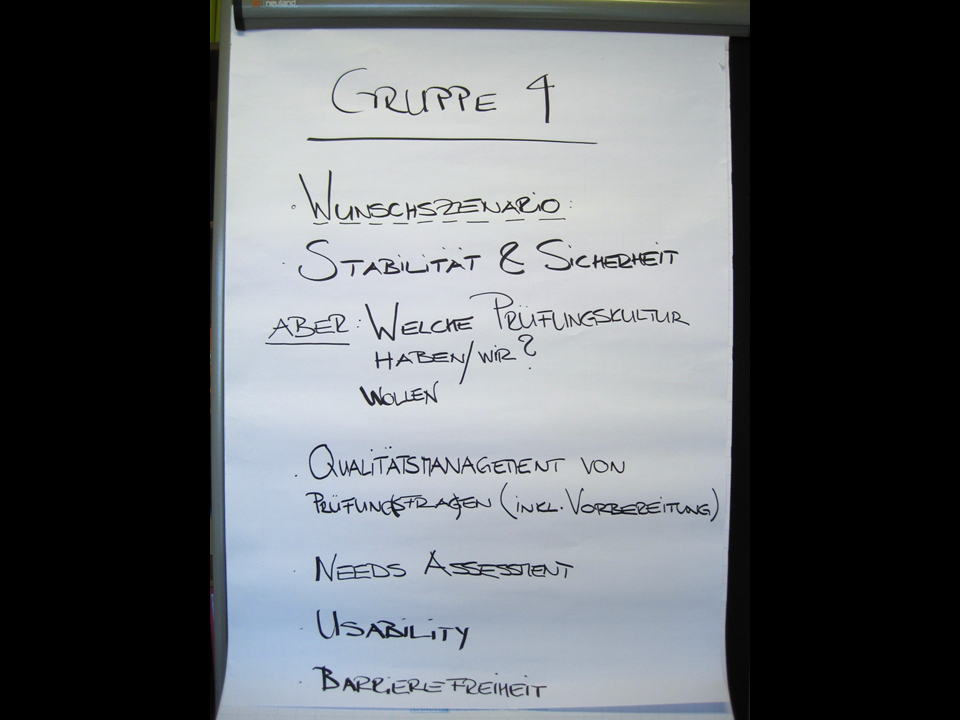 neuland
GRUPPE 4
· WUNSCHSZENARIO:
· STABILITÄT & SICHERHEIT
ABER: WELCHE PRÜFUNGSKULTUR
HABEN/WIR?
WOLLEN
· QUALITÄTSMANAGEMENT VON
PRÜFUNG(SFRAG)EN (INKL. VORBEREITUNG)
· NEEDS ASSESSMENT
· USABILITY
· BARRIEREFREIHEIT